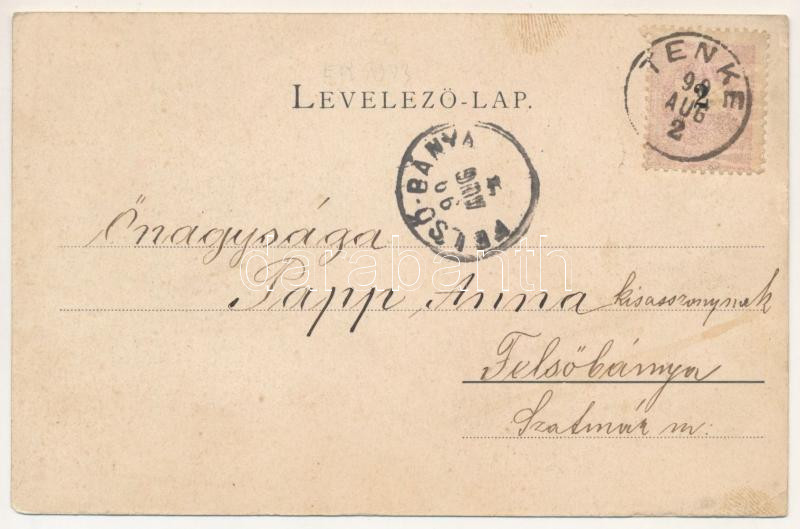 LEVELEZŐ-LAP.
TENKE
99
AUG
2
2
FELSŐ-BÁNYA
99
AUG
4
Őnagysága
Papp Anna kisasszonynak
Felsőbánya
Szatmár m:
darabanth